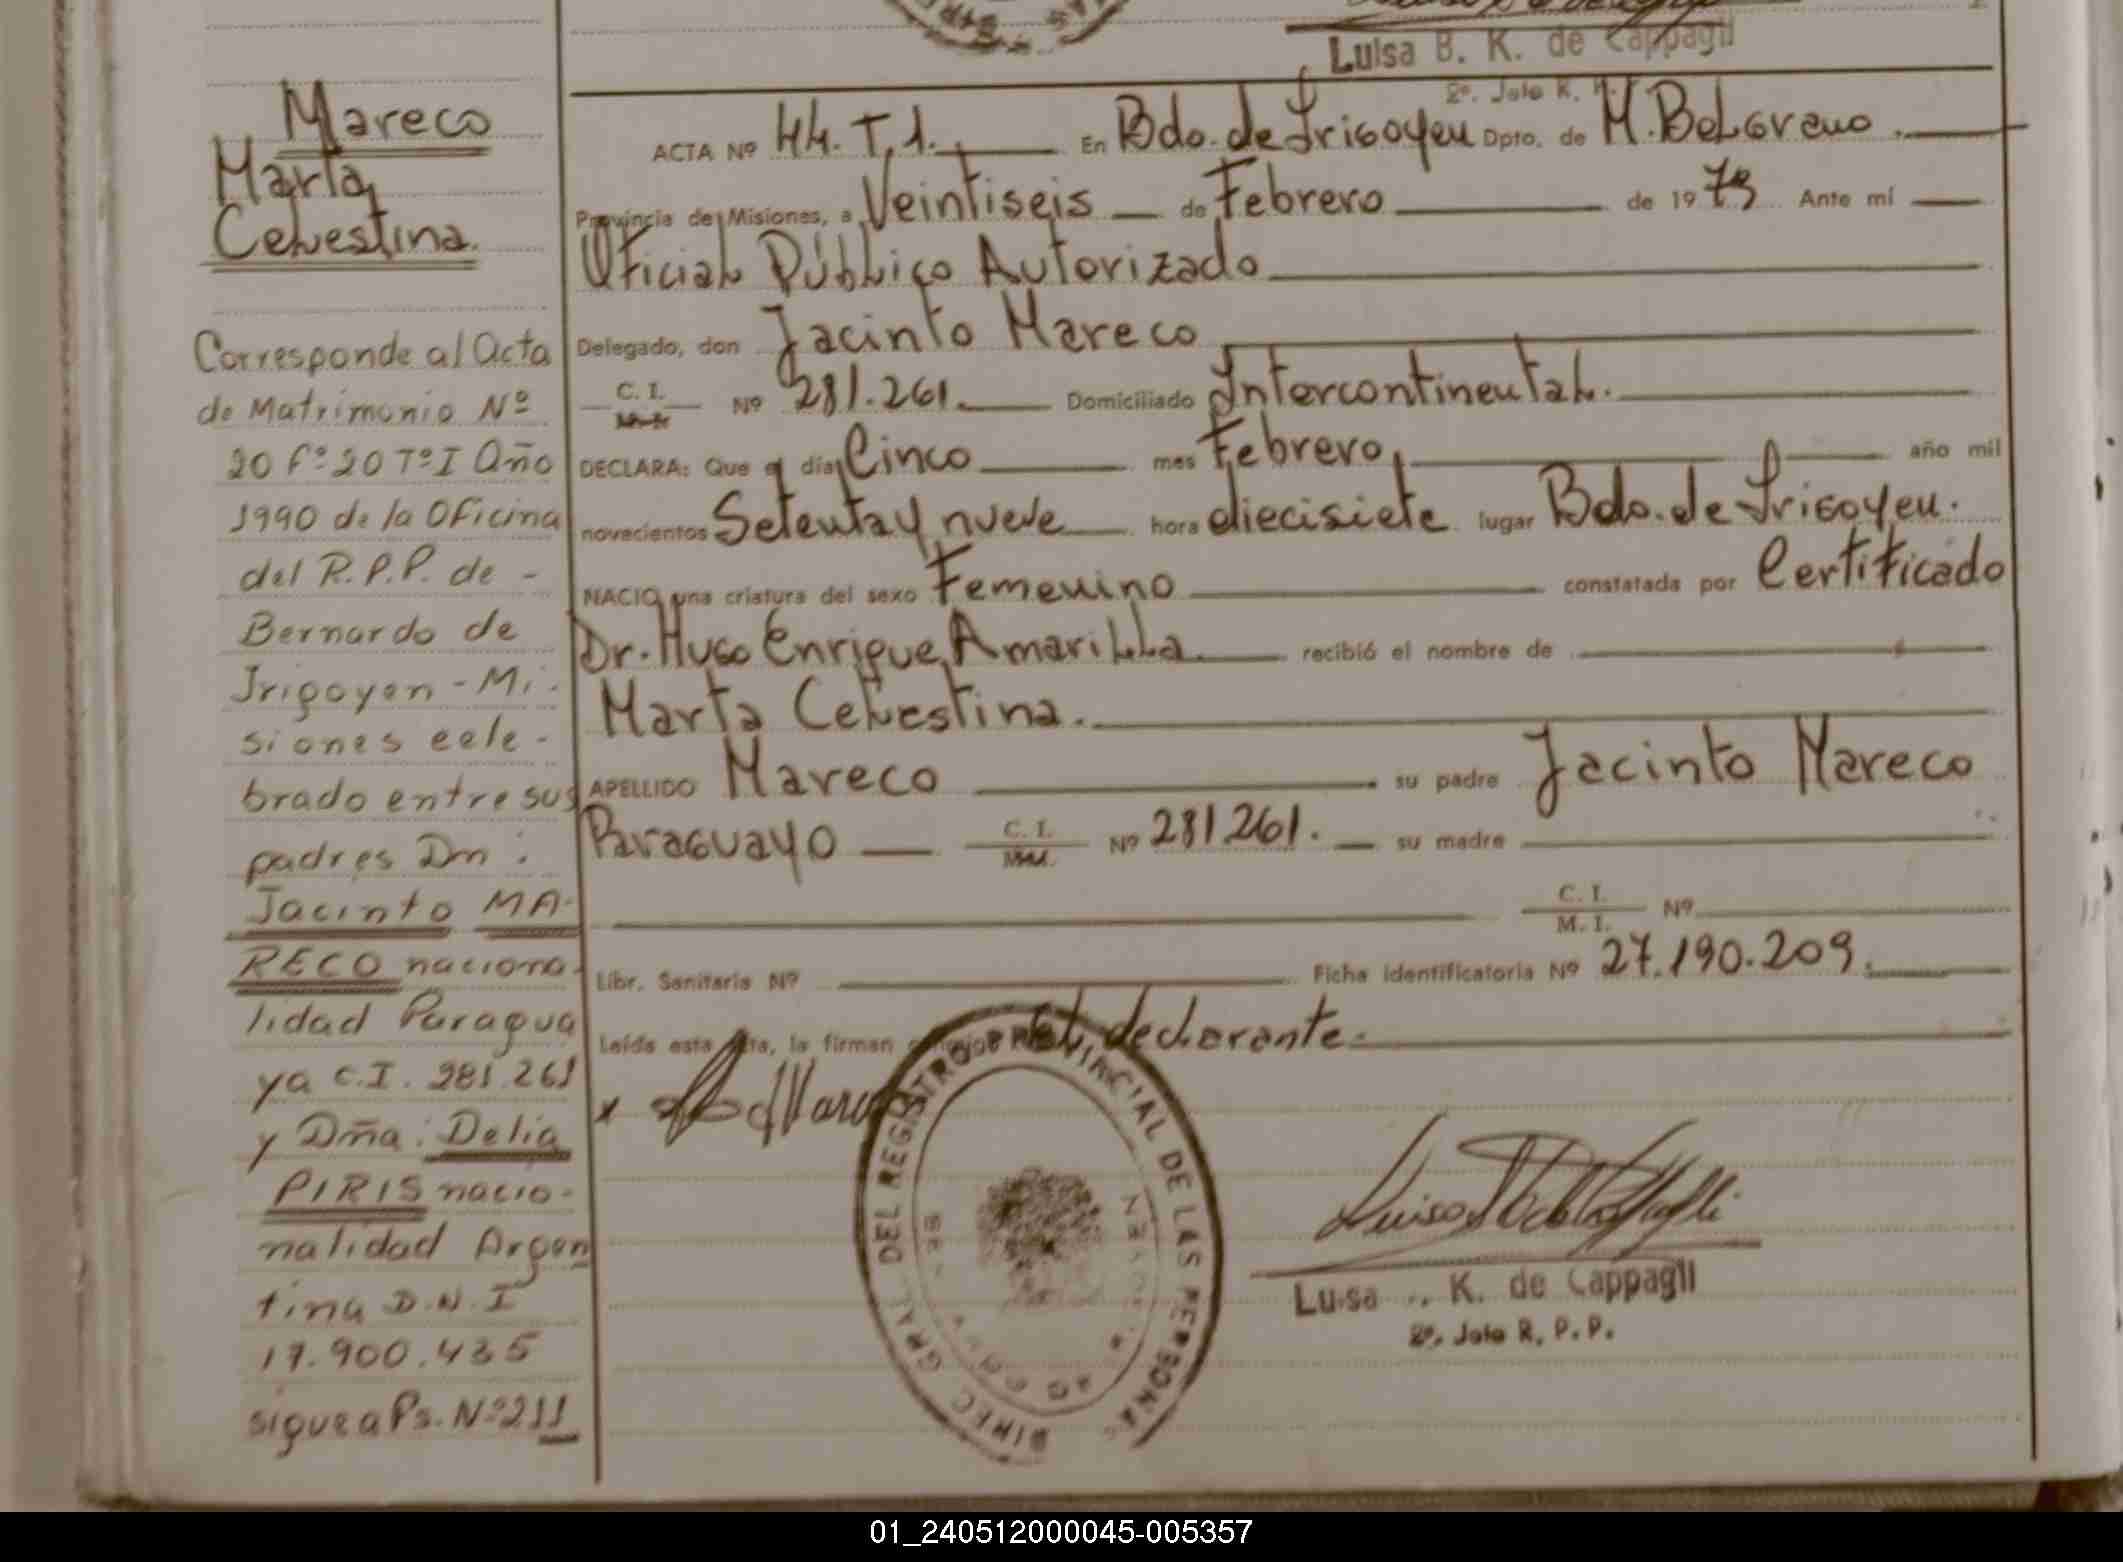 Luisa B. K. de Cappagli
2º. Jefe R. P.
Mareco
Marta
Celestina.
Corresponde al Acta
de Matrimonio Nº
20 Fº 20 Tº I Año
1990 de la Oficina
del R.P.P. de -
Bernardo de
Irigoyen - Mi-
siones cele-
brado entre sus
padres Dn:
Jacinto MA-
RECO naciona-
lidad Paragua
ya C.I. 281.261
y Dña: Delia
PIRIS nacio-
nalidad Argen
tina D.N.I
17.900.435
sigue a Ps. Nº 211
ACTA Nº 44. T, 1. En Bdo. de Irigoyen Dpto. de M. Belgrano.
Provincia de Misiones, a Veintiseis de Febrero de 1979 Ante mí
Oficial Público Autorizado
Delegado, don Jacinto Mareco
C. I. Nº 281.261. Domiciliado Intercontinental.
DECLARA: Que el día Cinco mes Febrero, año mil
novecientos Setenta y nueve hora diecisiete lugar Bdo. de Irigoyen.
NACIO una criatura del sexo Femenino constatada por Certificado
Dr. Hugo Enrique Amarilla recibió el nombre de
Marta Celestina.
APELLIDO Mareco su padre Jacinto Mareco
Paraguayo C. I. Nº 281261. su madre
C. I.
M. I. Nº
Libr. Sanitaria Nº Ficha identificatoria Nº 27.190.209.
Leída esta acta, la firman conmigo el declarante.
DIREC GRAL. DEL REGISTRO PROVINCIAL DE LAS PERSONAS
Luisa K. de Cappagli
2º. Jefe R. P. P.
01_240512000045-005357